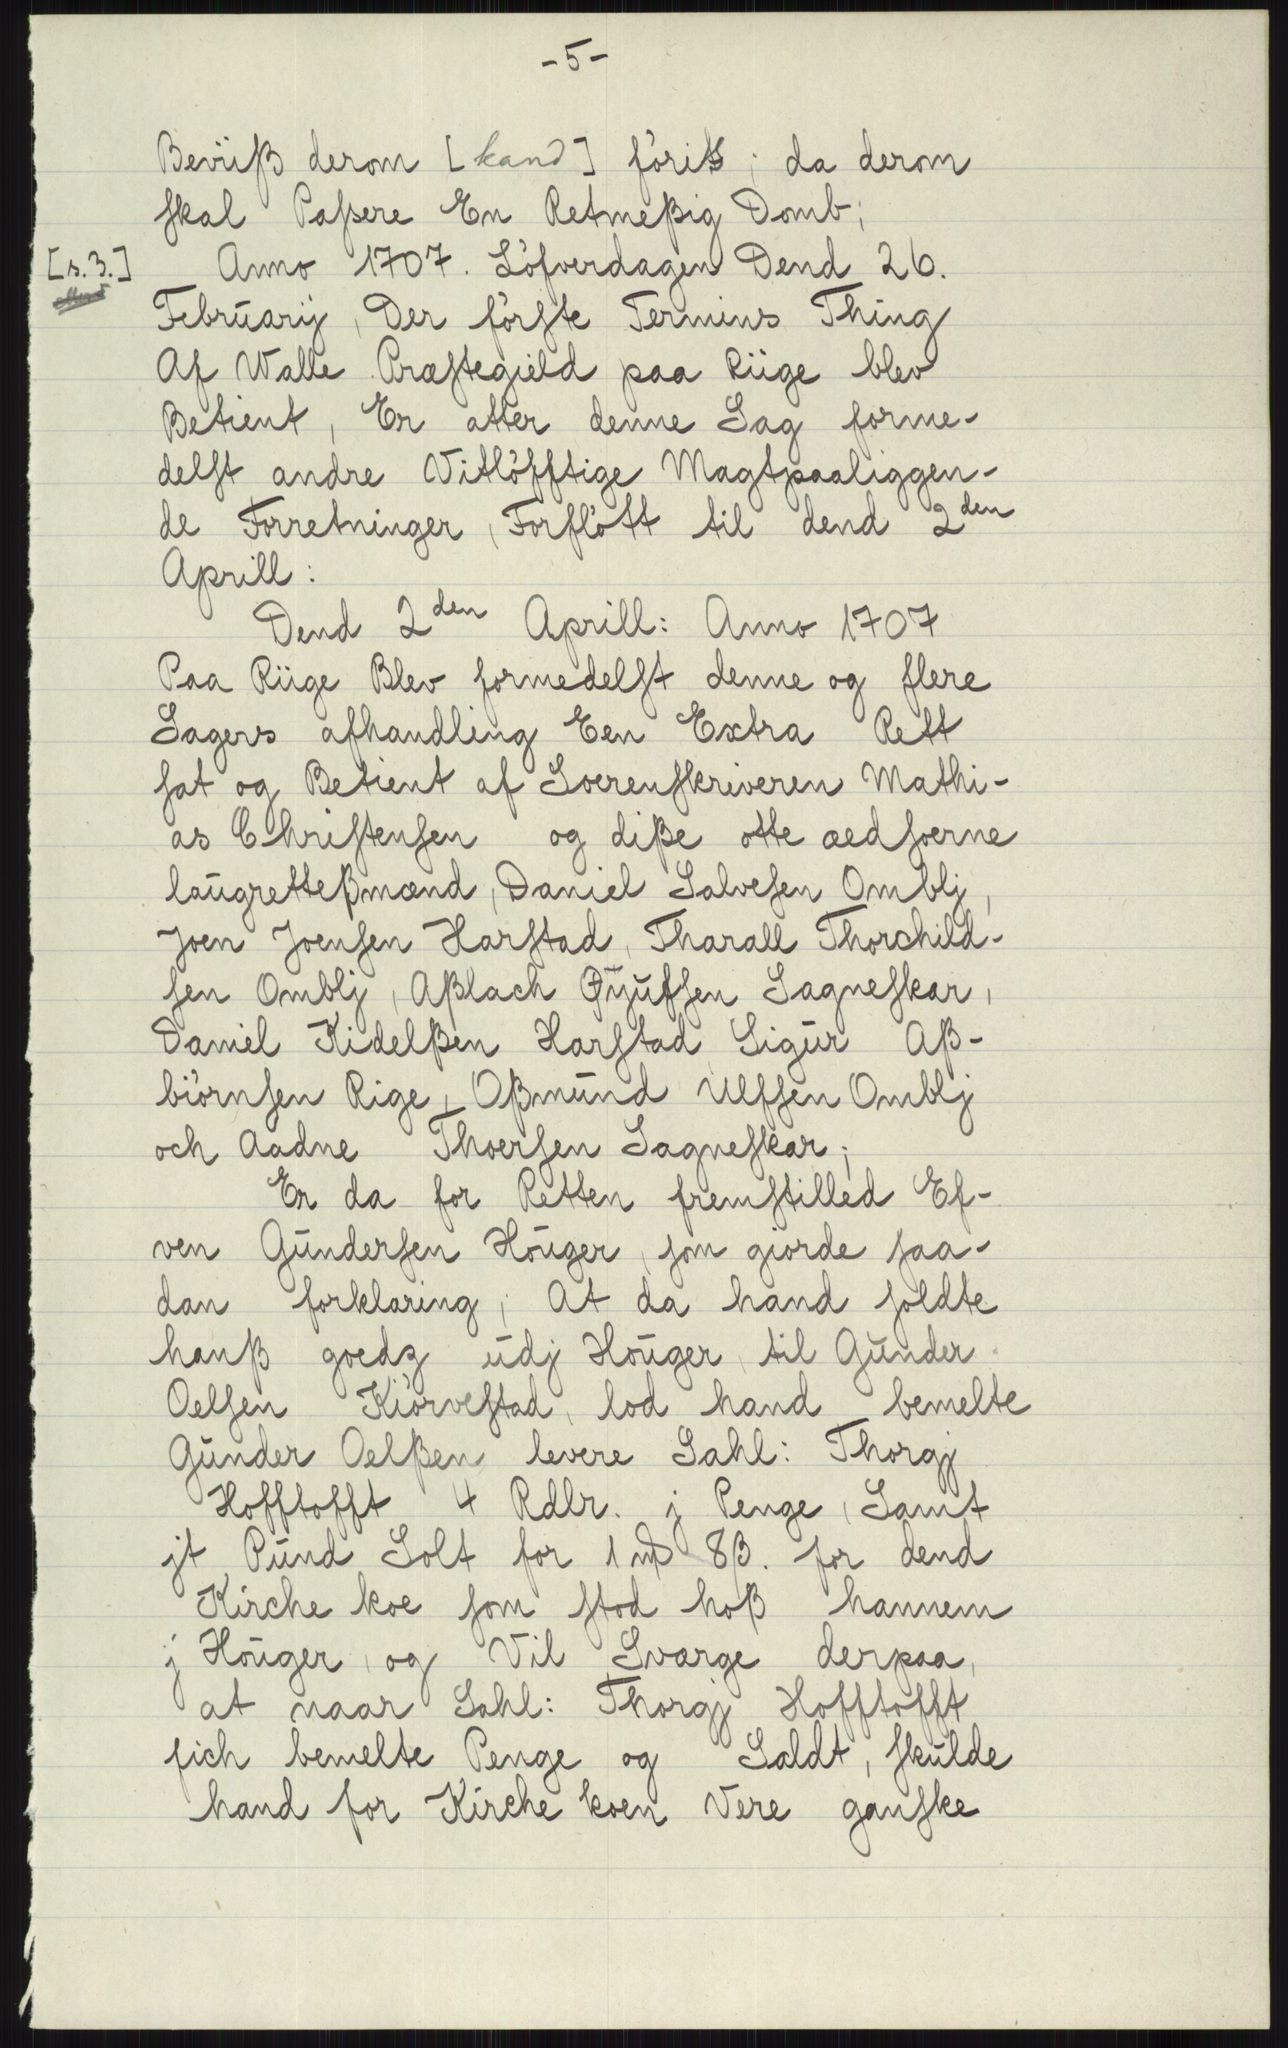 -5-
Beviiß derom [kand] föris; da derom
skal Paßere En Retmeßig Domb;
[s. 3.] Anno 1707. Löfverdagen Dend 26.
Februarij, Der förste Termins Thing
Af Walle Præstegield paa Riige blev
Betient, Er atter denne Sag forme-
delst andre Vitløfftige Magtpaaliggen-
de Forretninger, Forflött til dend 2den
Aprill:
Dend 2den Aprill: Anno 1707
Paa Riige Blev formedelst denne og flere
Sagers afhandling Een Extra Rett
sat og Betient af Soerenskriveren Mathi-
as Christensen og diße otte aedsoerne
laugretteßmænd, Daniel Salvesen Omblj,
Joen Joensen Harstad, Tharall Thorchild-
sen Omblj, Aßlach Gyufsen Sagneskar,
Daniel Kidelßen Harstad Sigur Aß-
biörnsen Rige, Oßmund Ulfsen Omblj
och Aadne Thoersen Sagneskar;
Er da for Retten fremstilled Ef-
ven Gundersen Houger, som giorde saa-
dan forklaring; At da hand soldte
hanß goedz udj Houger, til Gunder
Oelsen Kiörvestad, lod hand bemelte
Gunder Oelßen levere Sahl: Thorgj
Hofftofft 4 Rdlr. j Penge, Samt
jt Pund Solt for 1 mß 8ß. for dend
Kirche koe som stod hoß hannem
j Houger, og Vil Sværge derpaa,
at naar Sahl: Thorgj Hofftofft
fich bemelte Penge og Saldt, skulde
hand for Kirche koen Vere ganske